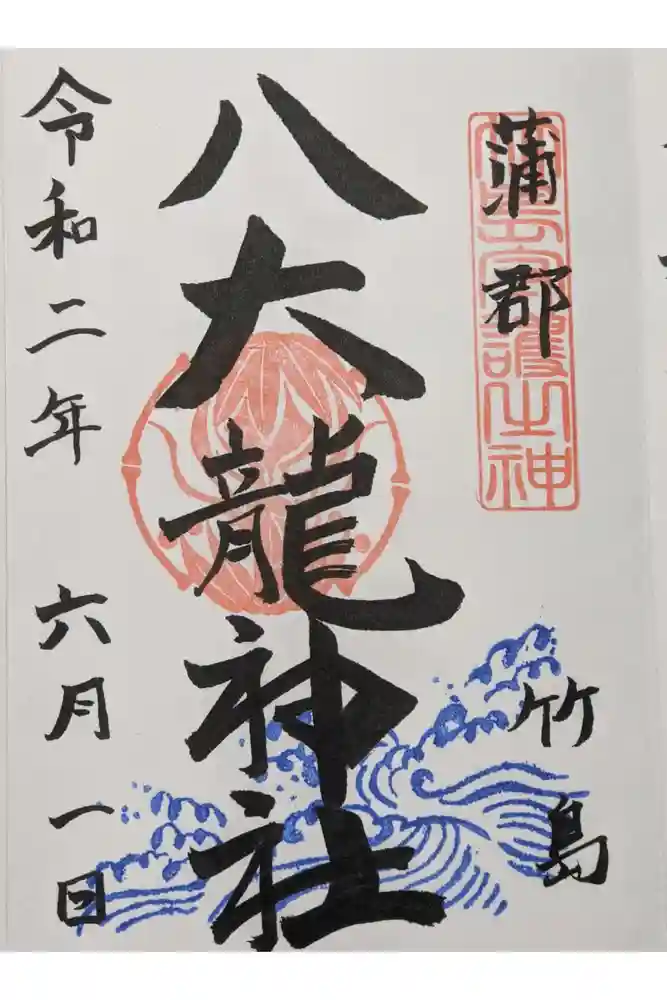 蒲郡
竹島
八大龍神社
令和二年 六月 一日